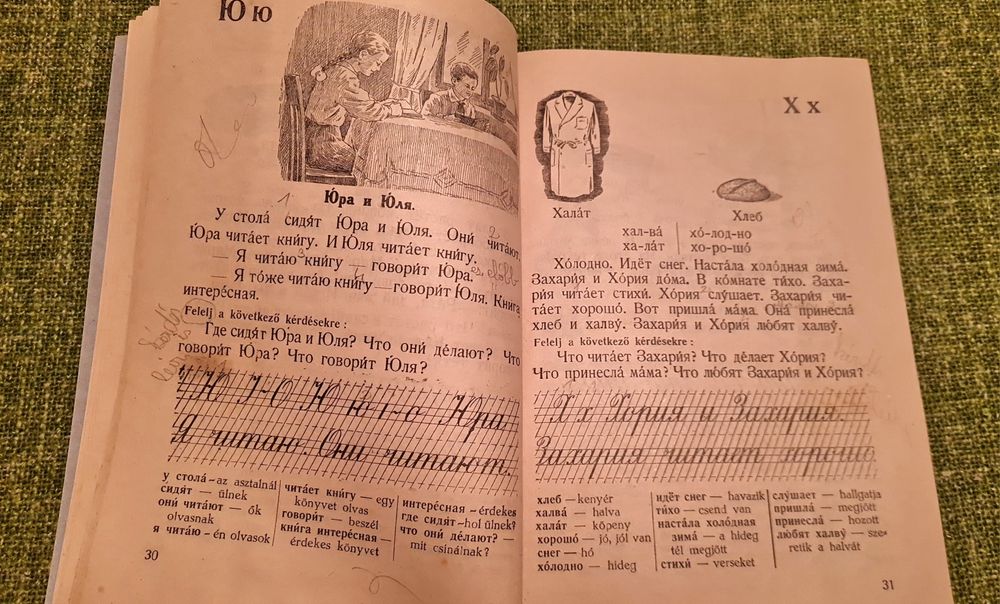 Ю ю
Ю́ра и Ю́ля.
У стола́ сидя́т Ю́ра и Ю́ля. Они́ чита́ют.
Ю́ра чита́ет кни́гу. И Ю́ля чита́ет кни́гу.
— Я чита́ю кни́гу — говори́т Ю́ра.
— Я то́же чита́ю кни́гу — говори́т Ю́ля. Книга
интере́сная.
Felelj a következő kérdésekre :
Где сидя́т Ю́ра и Ю́ля? Что они́ де́лают? Что
говори́т Ю́ра? Что говори́т Ю́ля?
Ю Ю Ю ю Юра
Я читаю. Они читают.
у стола́ – az asztalnál
сидя́т — ülnek
они́ чита́ют — ők
olvasnak
я чита́ю – én olvasok
чита́ет кни́гу — egy
könyvet olvas
говори́т — beszél
кни́га интере́сная —
érdekes könyvet
интере́сная – érdekes
где сидя́т – hol ülnek?
что они́ де́лают? —
mit csinálnak?
30
Х х
Хала́т
Хлеб
хал-ва́
ха-ла́т
хо́-лод-но
хо-ро-шо́
Хо́лодно. Идёт снег. Наста́ла холо́дная зима́.
Захари́я и Хо́рия до́ма. В ко́мнате ти́хо. Заха-
ри́я чита́ет стихи́. Хо́рия слу́шает. Захари́я чи-
та́ет хорошо́. Вот пришла́ ма́ма. Она́ принесла́
хлеб и халву́. Захари́я и Хо́рия лю́бят халву́.
Felelj a következő kérdésekre :
Что чита́ет Захари́я? Что де́лает Хо́рия?
Что принесла́ ма́ма? Что лю́бят Захари́я и Хо́рия?
Х х Хория и Захария.
Захария читает хорошо
хлеб — kenyér
халва́ — halva
хала́т — köpeny
хорошо́ — jó, jól van
снег — hó
хо́лодно — hideg
идёт снег — havazik
ти́хо — csend van
наста́ла холо́дная
зима́ — a hideg
tél megjött
стихи́ — verseket
слу́шает — hallgatja
пришла́ — megjött
принесла́ — hozott
лю́бят халву́ — sze-
retik a halvát
31